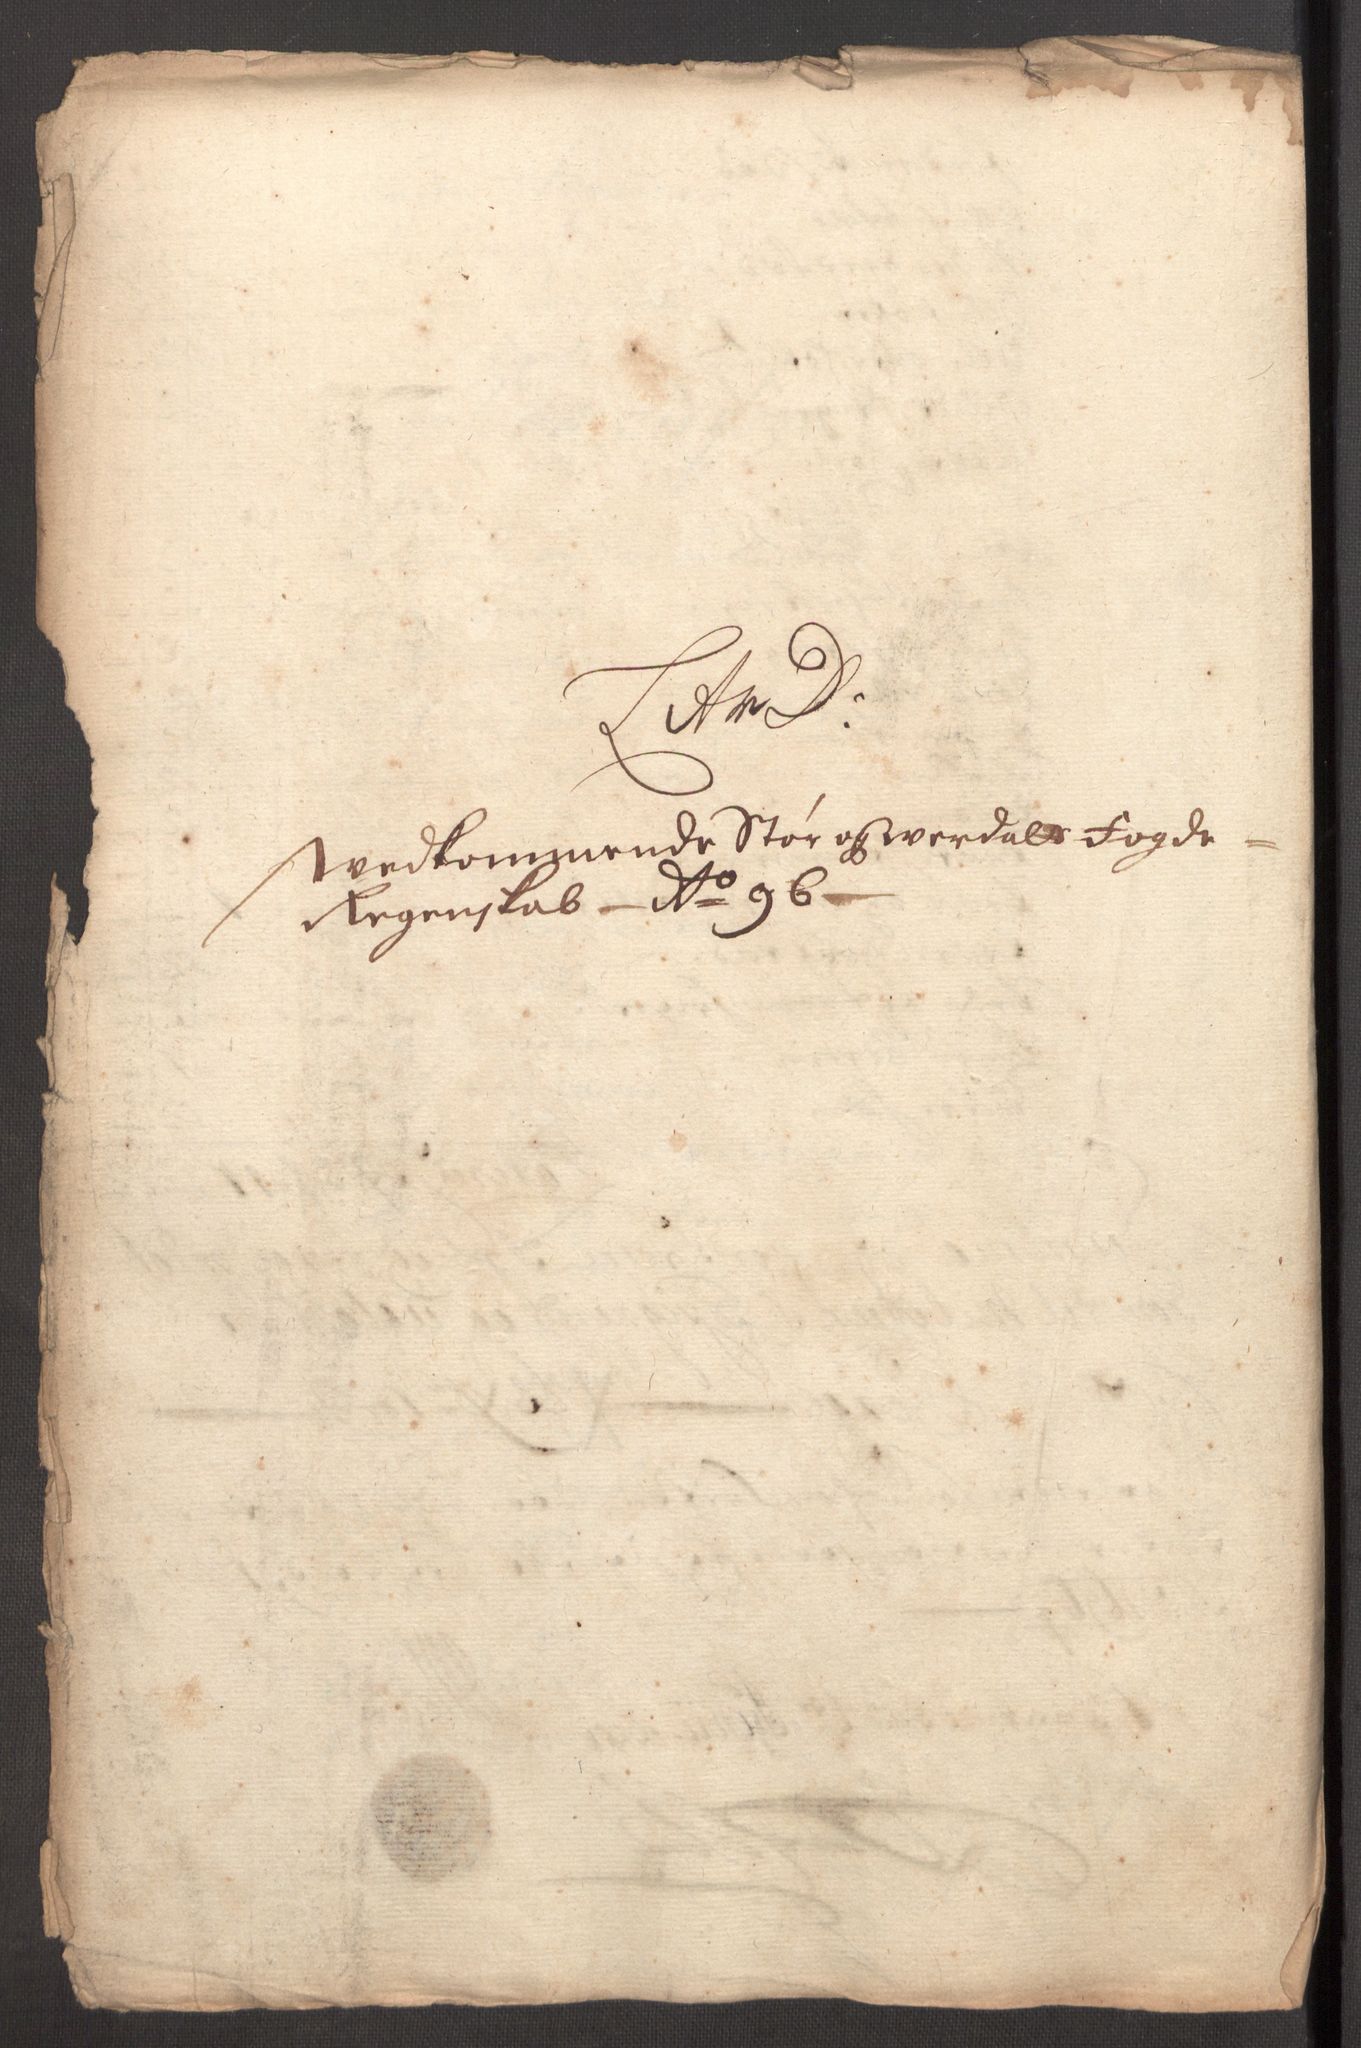 LitrD:
Vedkommende Stør og werdals Fogde=
Regenskab — Ao 96 —